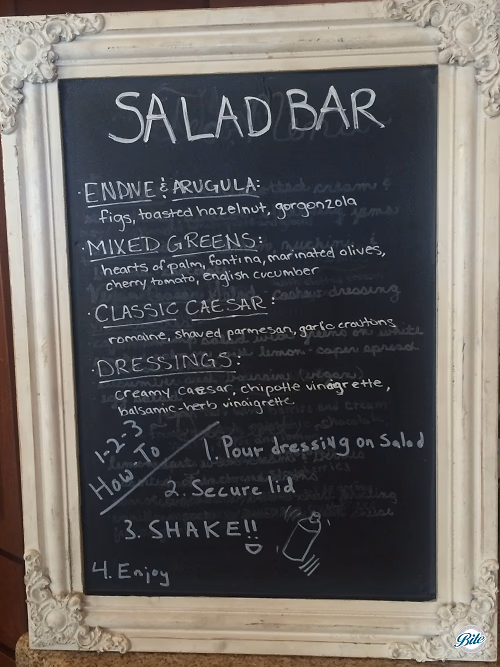 SALAD BAR
· ENDIVE & ARUGULA:
figs, toasted hazelnut, gorgonzola
· MIXED GREENS:
hearts of palm, fontina, marinated olives,
cherry tomato, english cucumber
· CLASSIC CAESAR:
romaine, shaved parmesan, garlic croutons
· DRESSINGS:
creamy caesar, chipotle vinaigrette,
balsamic-herb vinaigrette
1-2-3
How To
1. Pour dressing on Salad
2. Secure lid
3. SHAKE!!
4. Enjoy
Bite